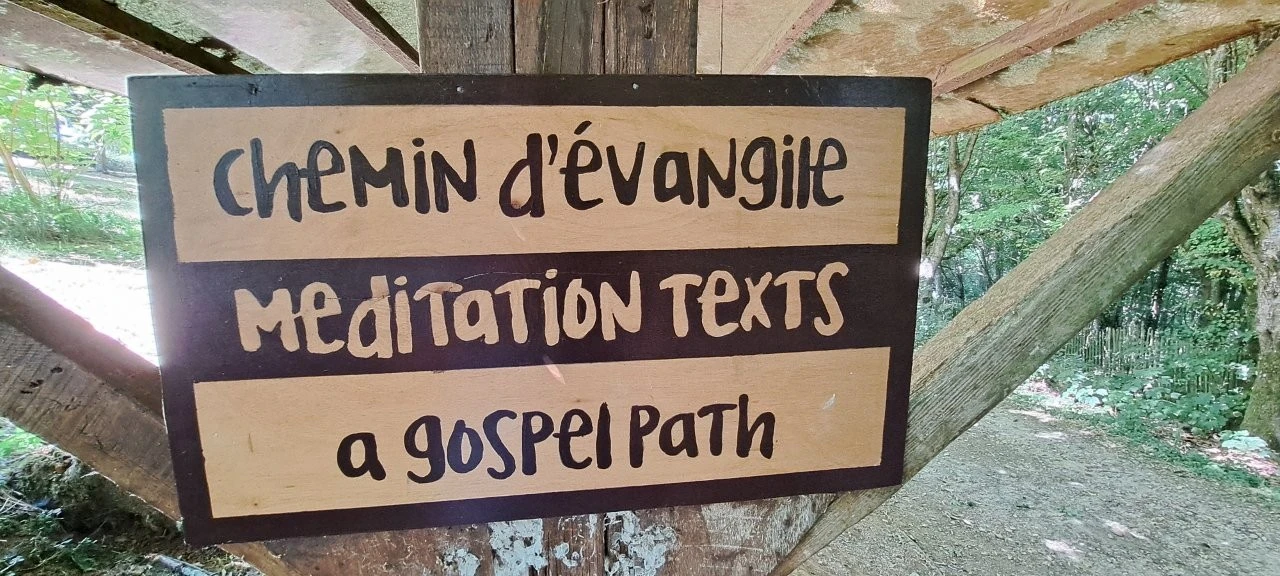 chemin d'évangile
Meditation Texts
a gospel path